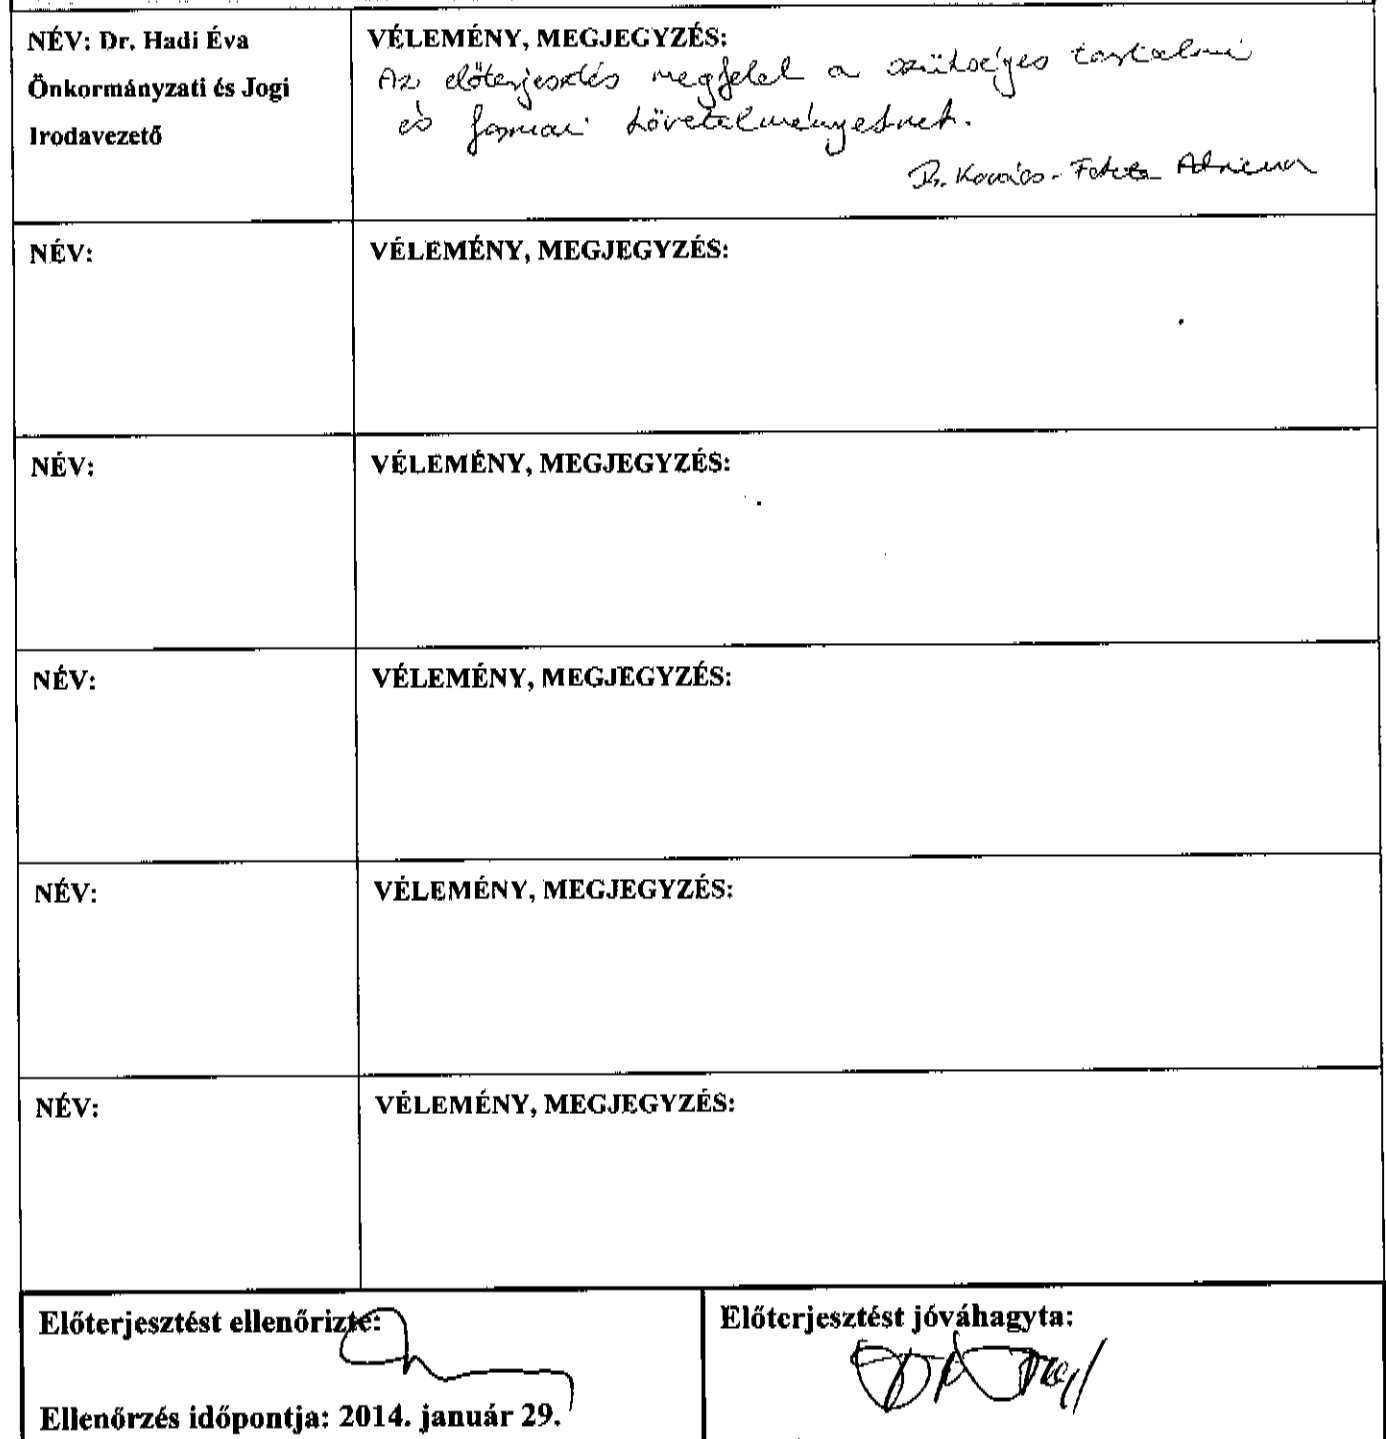 NÉV: Dr. Hadi Éva
Önkormányzati és Jogi
Irodavezető
VÉLEMÉNY, MEGJEGYZÉS:
Az előterjesztés megfelel a szükséges tartalmi
és formai követelményeknek.
Dr. Kovács-Fekete Adrienn
NÉV:
VÉLEMÉNY, MEGJEGYZÉS:
NÉV:
VÉLEMÉNY, MEGJEGYZÉS:
NÉV:
VÉLEMÉNY, MEGJEGYZÉS:
NÉV:
VÉLEMÉNY, MEGJEGYZÉS:
NÉV:
VÉLEMÉNY, MEGJEGYZÉS:
Előterjesztést ellenőrizte:
Ellenőrzés időpontja: 2014. január 29.
Előterjesztést jóváhagyta: